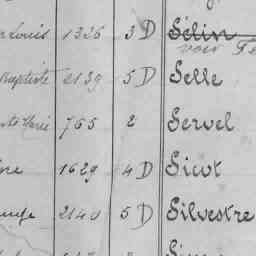 Louis 1326 3 D Sélin
voir
Baptiste 2139 5 D Selle
Marie 765 2 Servel
1629 4 D Sicot
2140 5 D Silvestre